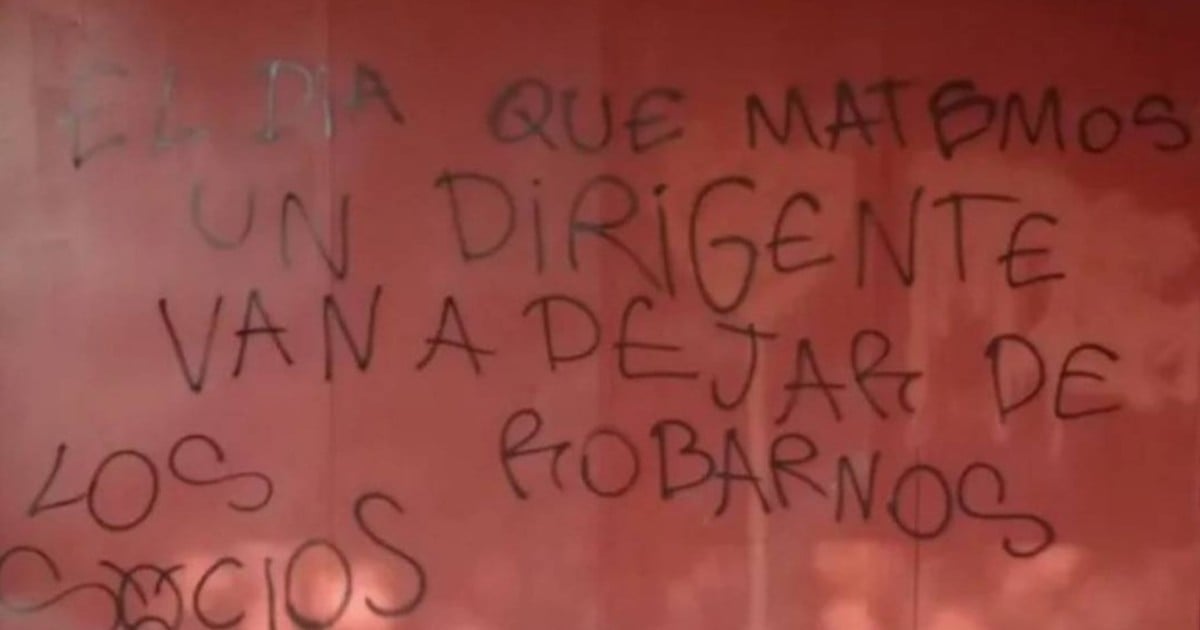 EL DIA QUE MATEMOS
UN DIRIGENTE
VAN A DEJAR DE
ROBARNOS
LOS
SOCIOS